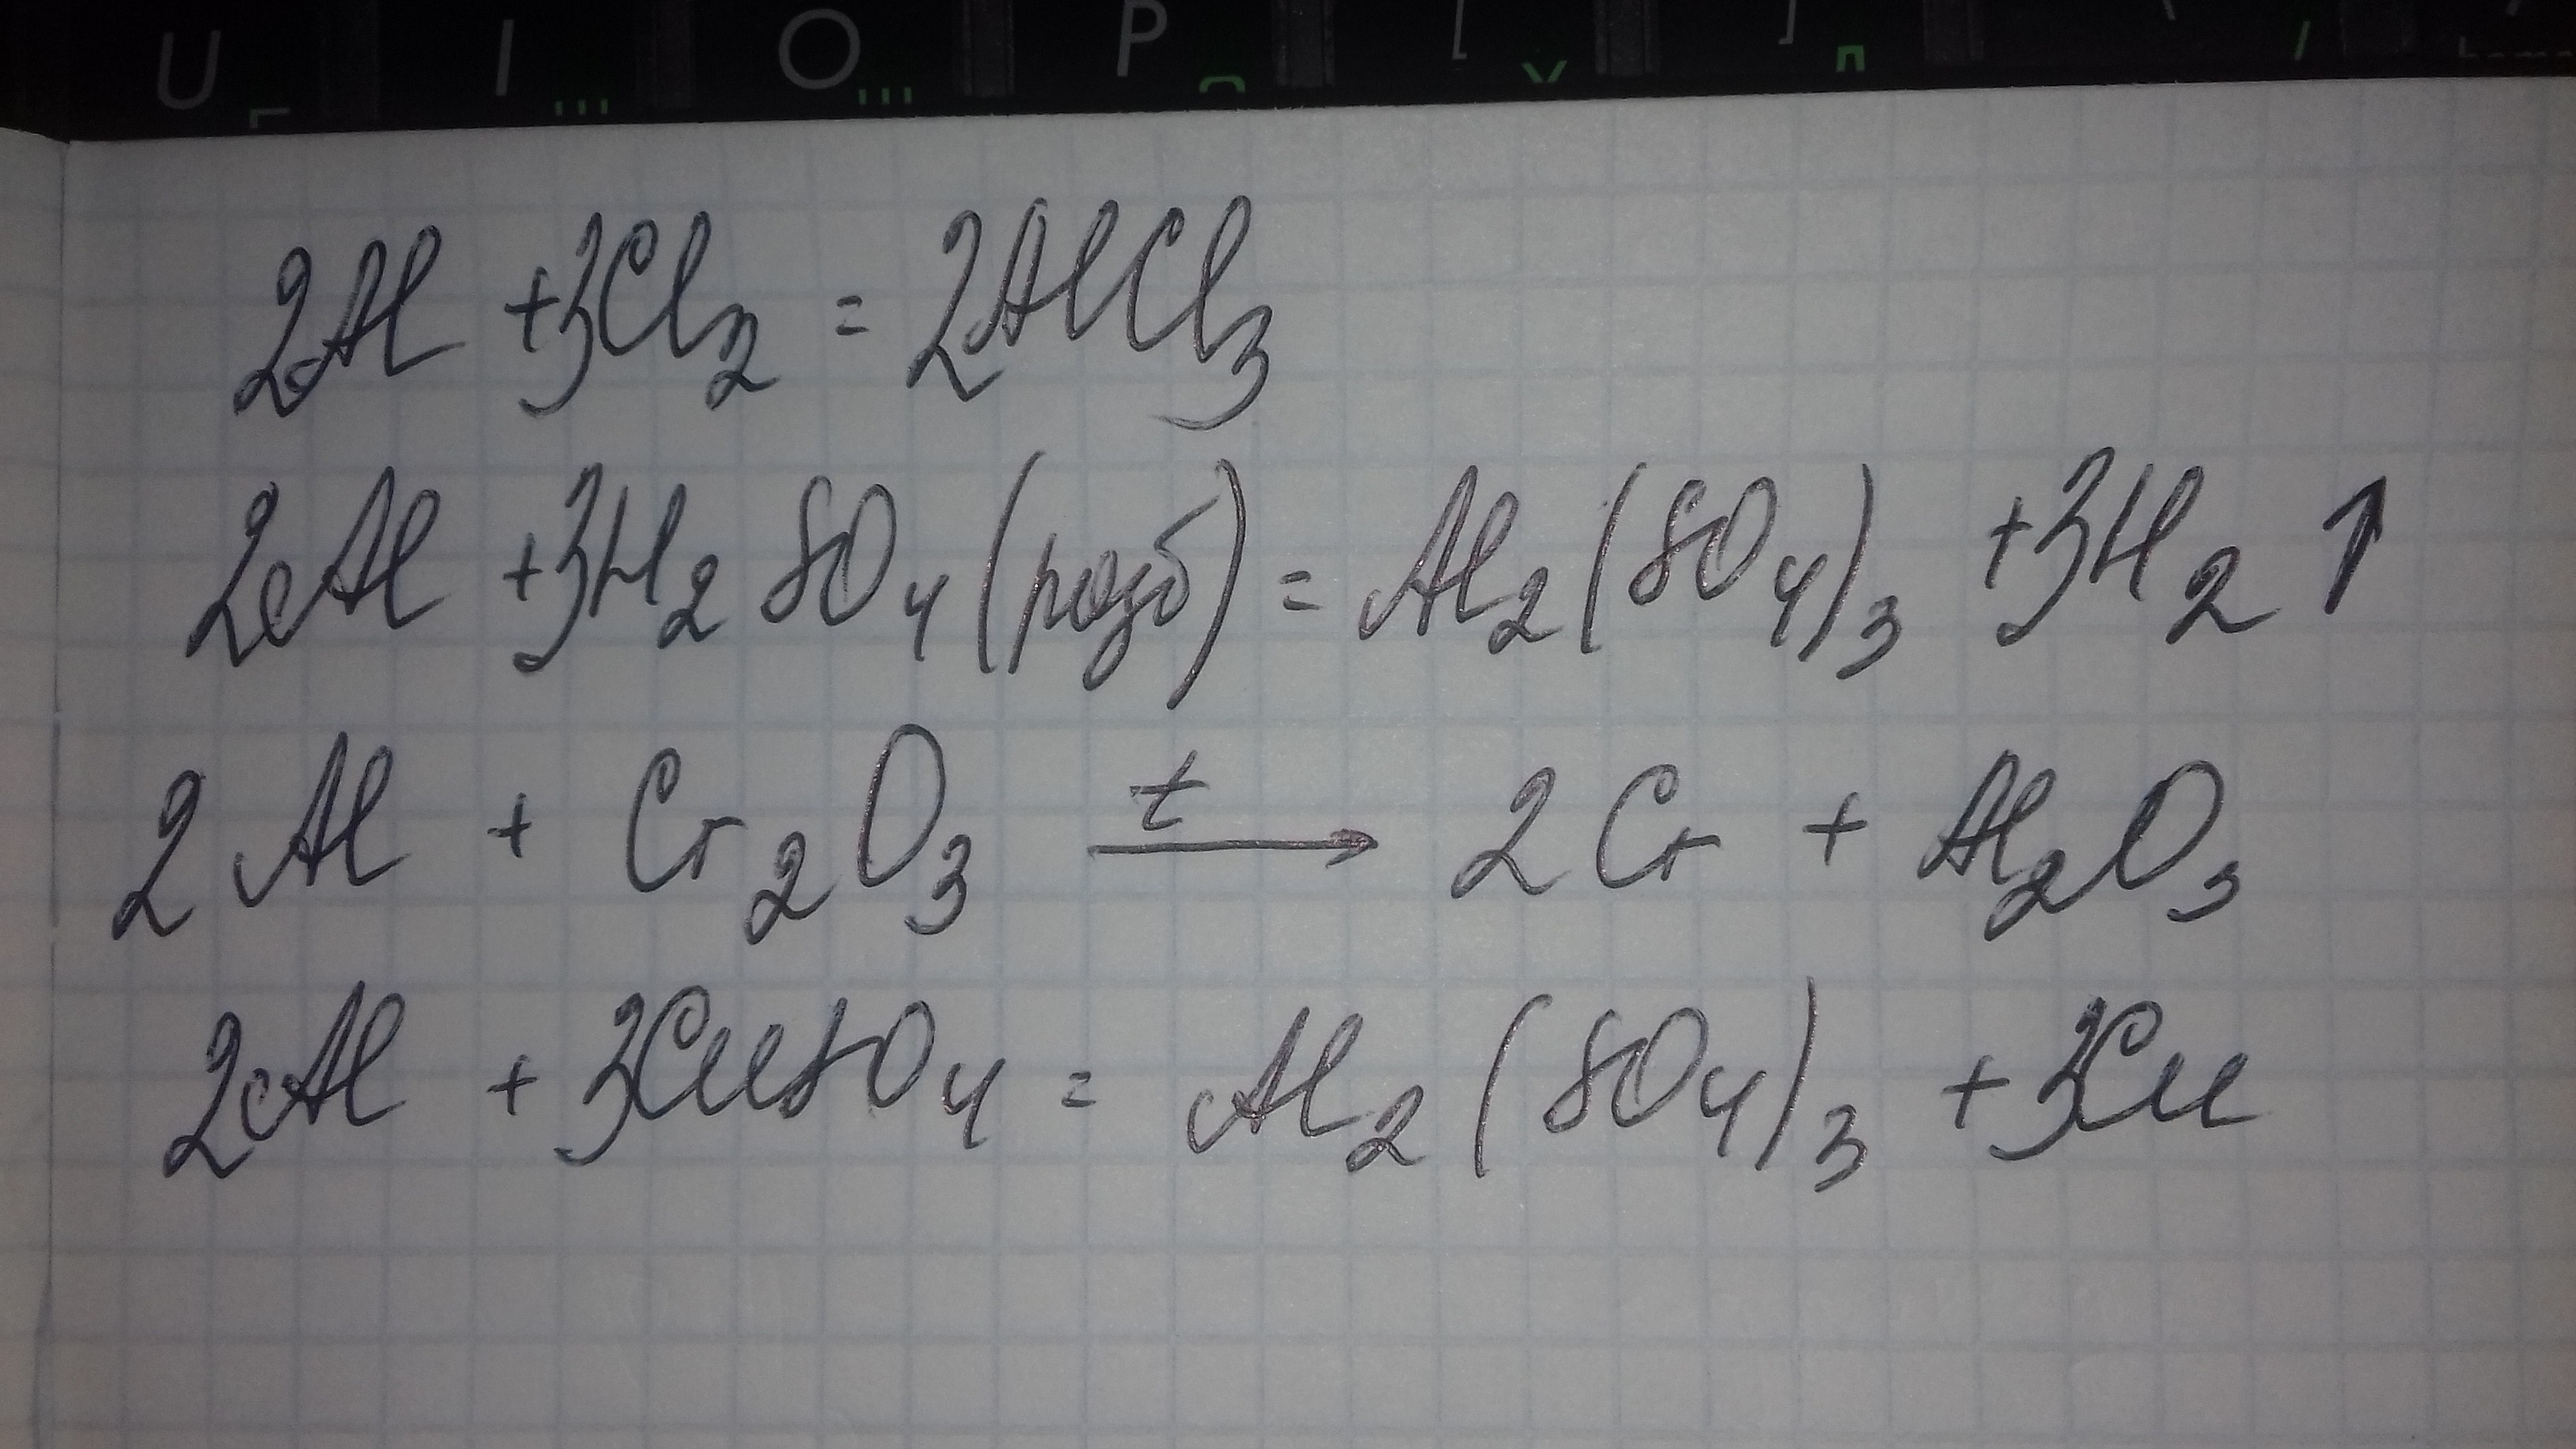 U I O P [ ]
2Al + 3Cl₂ = 2AlCl₃
2Al + 3H₂SO₄ (розб) = Al₂(SO₄)₃ + 3H₂ ↑
2Al + Cr₂O₃ —t→ 2Cr + Al₂O₃
2Al + 3CuSO₄ = Al₂(SO₄)₃ + 3Cu